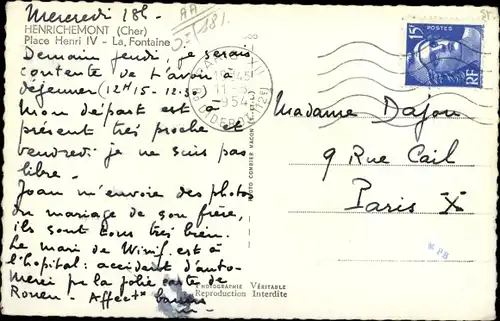 Mercredi 18h-
AA
181.
HENRICHEMONT (Cher)
Place Henri IV - La Fontaine
Demain jeudi, je serais
contente de t'avoir à
déjeuner (12h15 - 12.30)
Mon départ est à
présent très proche et
vendredi je ne suis pas
libre.
Joan m'envoie des photos
du mariage de son frère,
ils sont tous très bien.
Le mari de est à
l'hopital: accident d'auto-
Merci pr la jolie carte de
Rouen. - Affectx baisers
PARIS XII
11-5
1954
15F
POSTES
RF
PHOTO COMBIER MACON
Madame Dajou
9 Rue Cail
Paris X
PHOTOGRAPHIE VÉRITABLE
Reproduction Interdite
PB